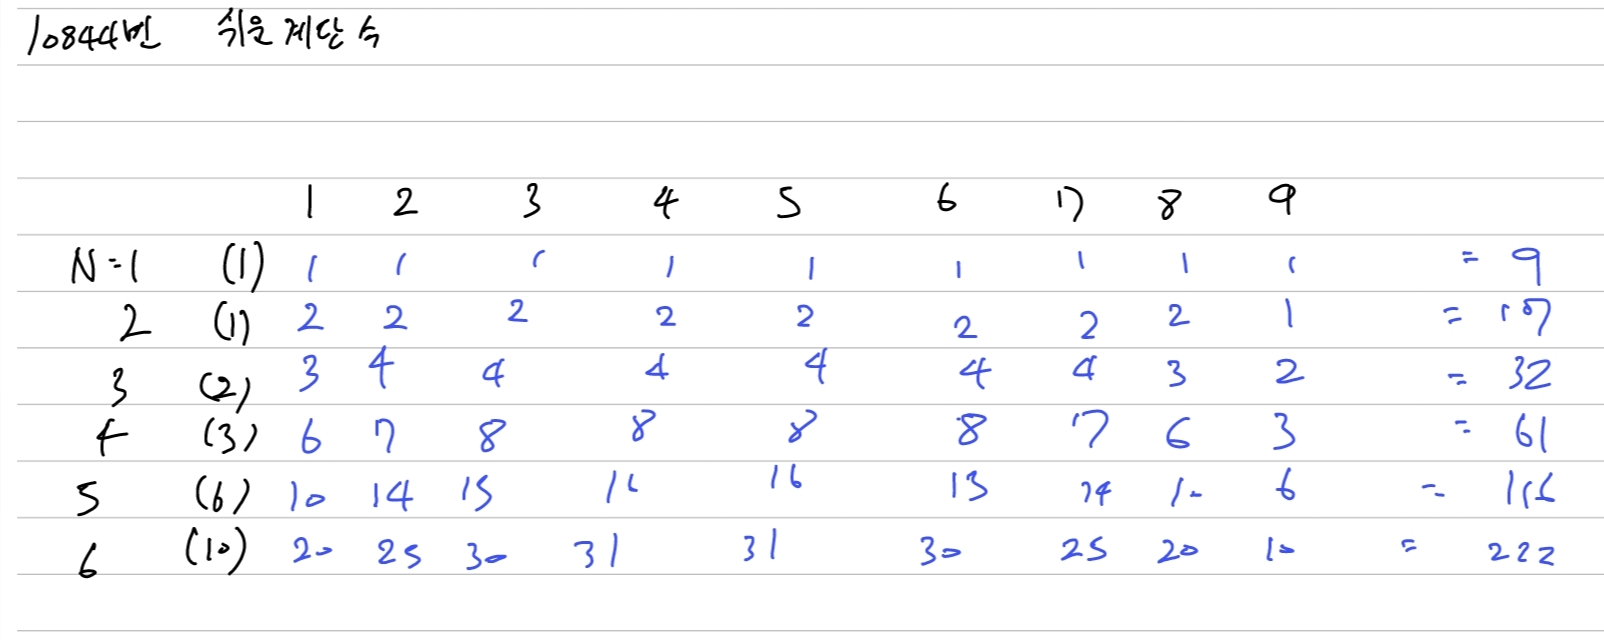 10844번 쉬운 계단 수
1 2 3 4 5 6 7 8 9
N=1 (1) 1 1 1 1 1 1 1 1 1 = 9
2 (1) 2 2 2 2 2 2 2 2 1 = 17
3 (2) 3 4 4 4 4 4 4 3 2 = 32
4 (3) 6 7 8 8 8 8 7 6 3 = 61
5 (6) 10 14 15 16 16 15 14 10 6 = 116
6 (10) 20 25 30 31 31 30 25 20 10 = 222